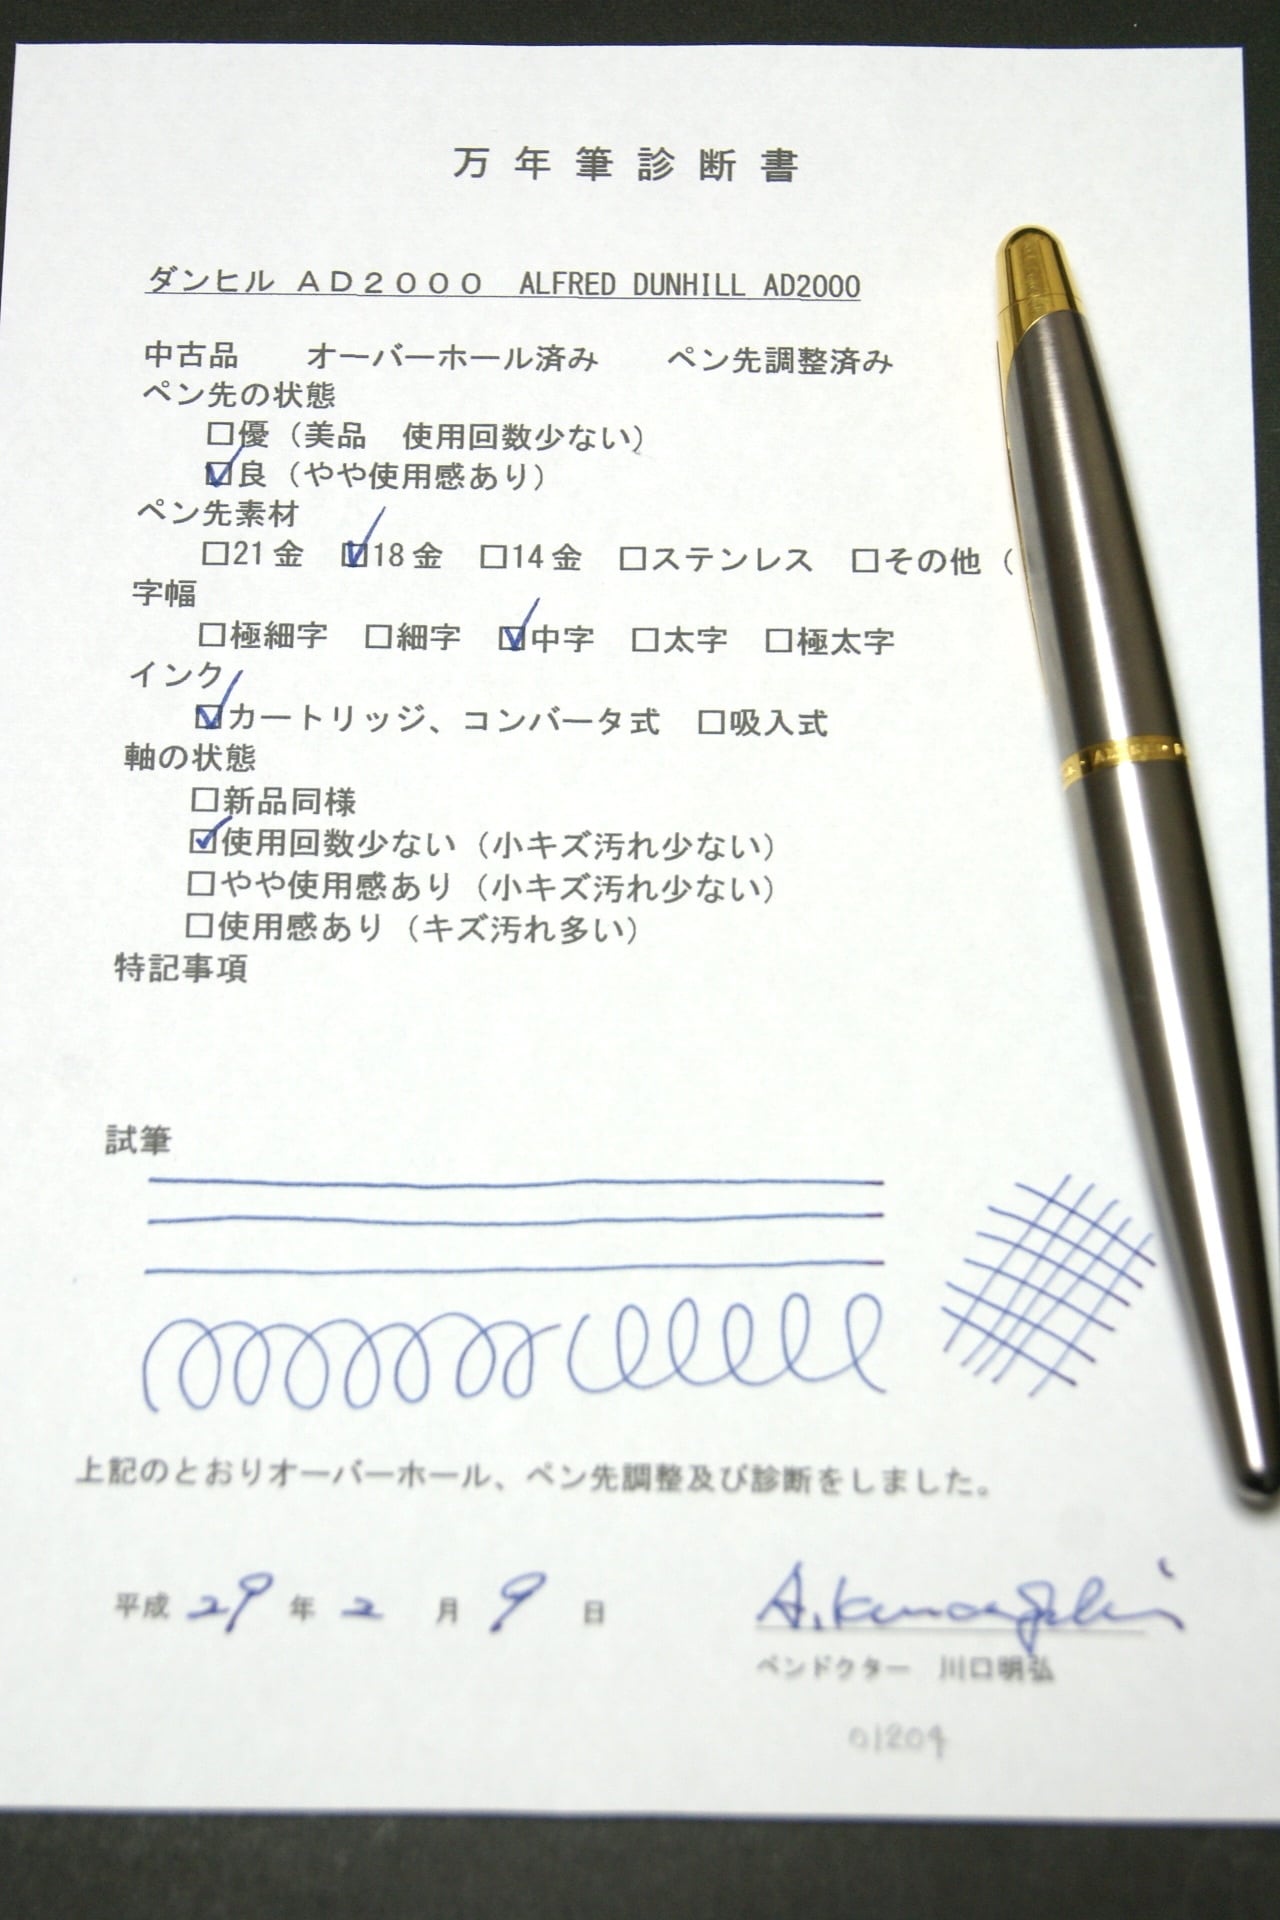 万年筆診断書
ダンヒル ＡＤ２０００ ALFRED DUNHILL AD2000
中古品 オーバーホール済み ペン先調整済み
ペン先の状態
□優（美品 使用回数少ない）
☑良（やや使用感あり）
ペン先素材
□21金 ☑18金 □14金 □ステンレス □その他（
字幅
□極細字 □細字 ☑中字 □太字 □極太字
インク
☑カートリッジ、コンバータ式 □吸入式
軸の状態
□新品同様
☑使用回数少ない（小キズ汚れ少ない）
□やや使用感あり（小キズ汚れ少ない）
□使用感あり（キズ汚れ多い）
特記事項
試筆
上記のとおりオーバーホール、ペン先調整及び診断をしました。
平成 29 年 2 月 9 日
A. Kawaguchi
ペンドクター 川口明弘
01204